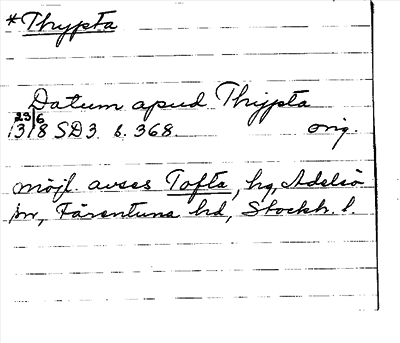 *Thypta
Datum apud Thypta
23/6
1318 SD3 s. 368. orig.
möjl. avses Tofta, hg, Adelsö
sn, Färentuna hd, Stockh. l.